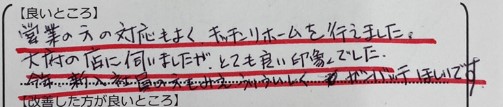 【良いところ】
営業の方の対応もよく、キッチンリホームを行えました。
大府の店に伺いましたが、とても良い印象でした。
今年 新入社員の方もみえ ういういしく ガンバッテ ほしいです
【改善した方が良いところ】